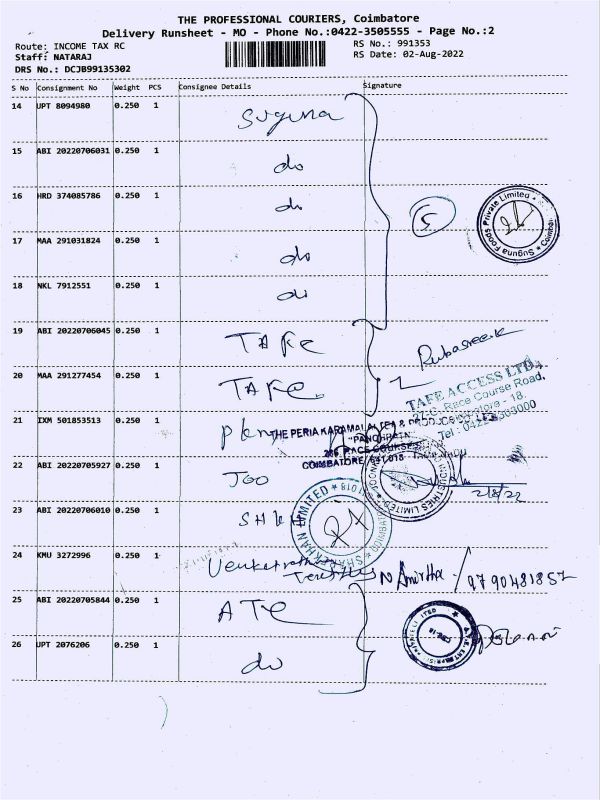 THE PROFESSIONAL COURIERS, Coimbatore
Delivery Runsheet - MO - Phone No.:0422-3505555 - Page No.:2
Route: INCOME TAX RC
RS No.: 991353
Staff: NATARAJ
RS Date: 02-Aug-2022
DRS No.: DCJB99135302
S No Consignment No Weight PCS Consignee Details Signature
14 UPT 8094980 0.250 1 Suguna
15 ABI 20220706031 0.250 1 do
16 HRD 374085786 0.250 1 do
5
Suguna Foods Private Limited
17 MAA 291031824 0.250 1 do
18 NKL 7912551 0.250 1 do
19 ABI 20220706045 0.250 1 TAFE
Rubasree.k
20 MAA 291277454 0.250 1 TAFE
2
TAFE ACCESS LTD.,
27-C, Race Course Road,
Coimbatore - 18.
Tel: 0422-6503000
21 IXM 501853513 0.250 1
THE PERIA KARAMALAI TEA & PRODUCE
"PANCHRATN"
286 RACE COURSE
COIMBATORE 641 018 TAMILNADU
22 ABI 20220705927 0.250 1 JGO
LIMITED
2/8/22
23 ABI 20220706010 0.250 1
SHAREKHAN LIMITED
24 KMU 3272996 0.250 1
N Amirtha / 9790481852
25 ABI 20220705844 0.250 1 ATE
26 UPT 2076206 0.250 1 do